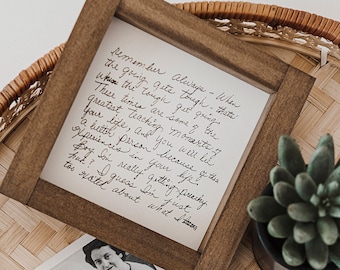 Remember Always - When
the going gets tough, that's
when the tough get going.
These times are some of the
greatest teaching moments of
your life, and you will be
a better Person because of this
experiences in your life.
Boy Im really getting Preachy
but? I guess Im just
so about what I